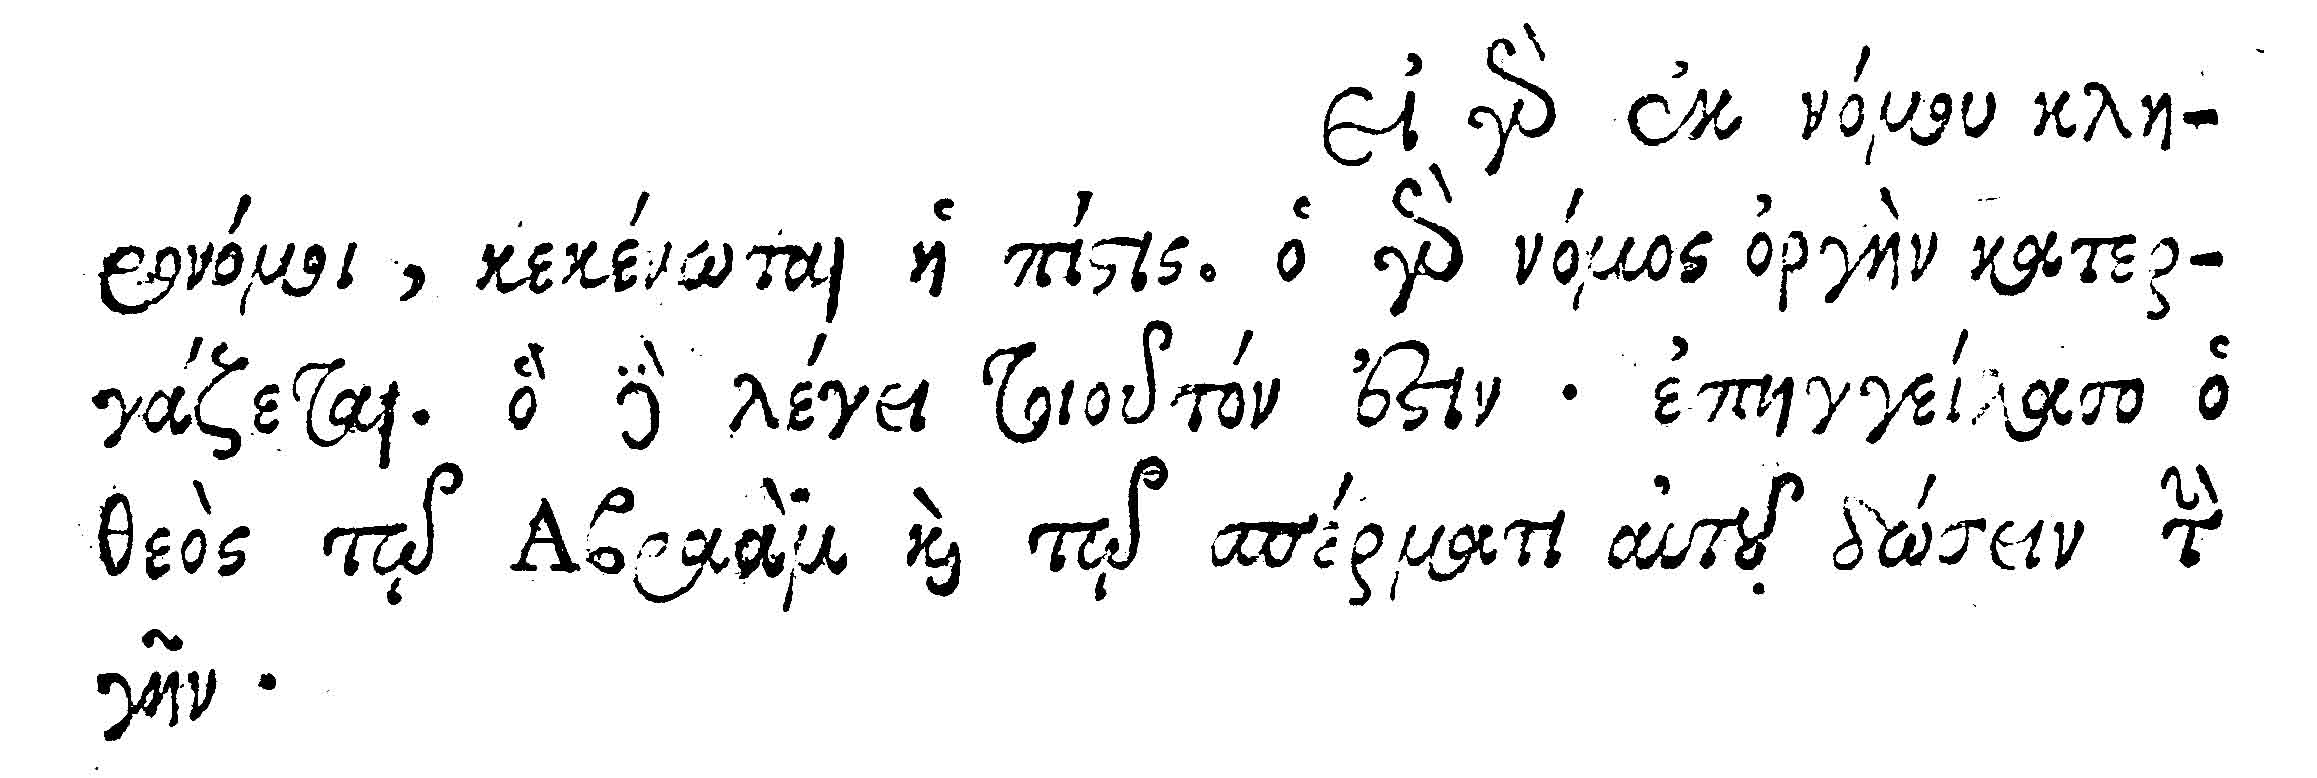 εἰ γὰρ ἐκ νόμου κλη-
ρονόμοι, κεκένωται ἡ πίστις. ὁ γὰρ νόμος ὀργὴν κατερ-
γάζεται. ὃ δὲ λέγει τοιοῦτόν ἐστιν · ἐπηγγείλατο ὁ
θεὸς τῷ Ἀβραὰμ καὶ τῷ σπέρματι αὐτοῦ δώσειν τὴν
γῆν ·